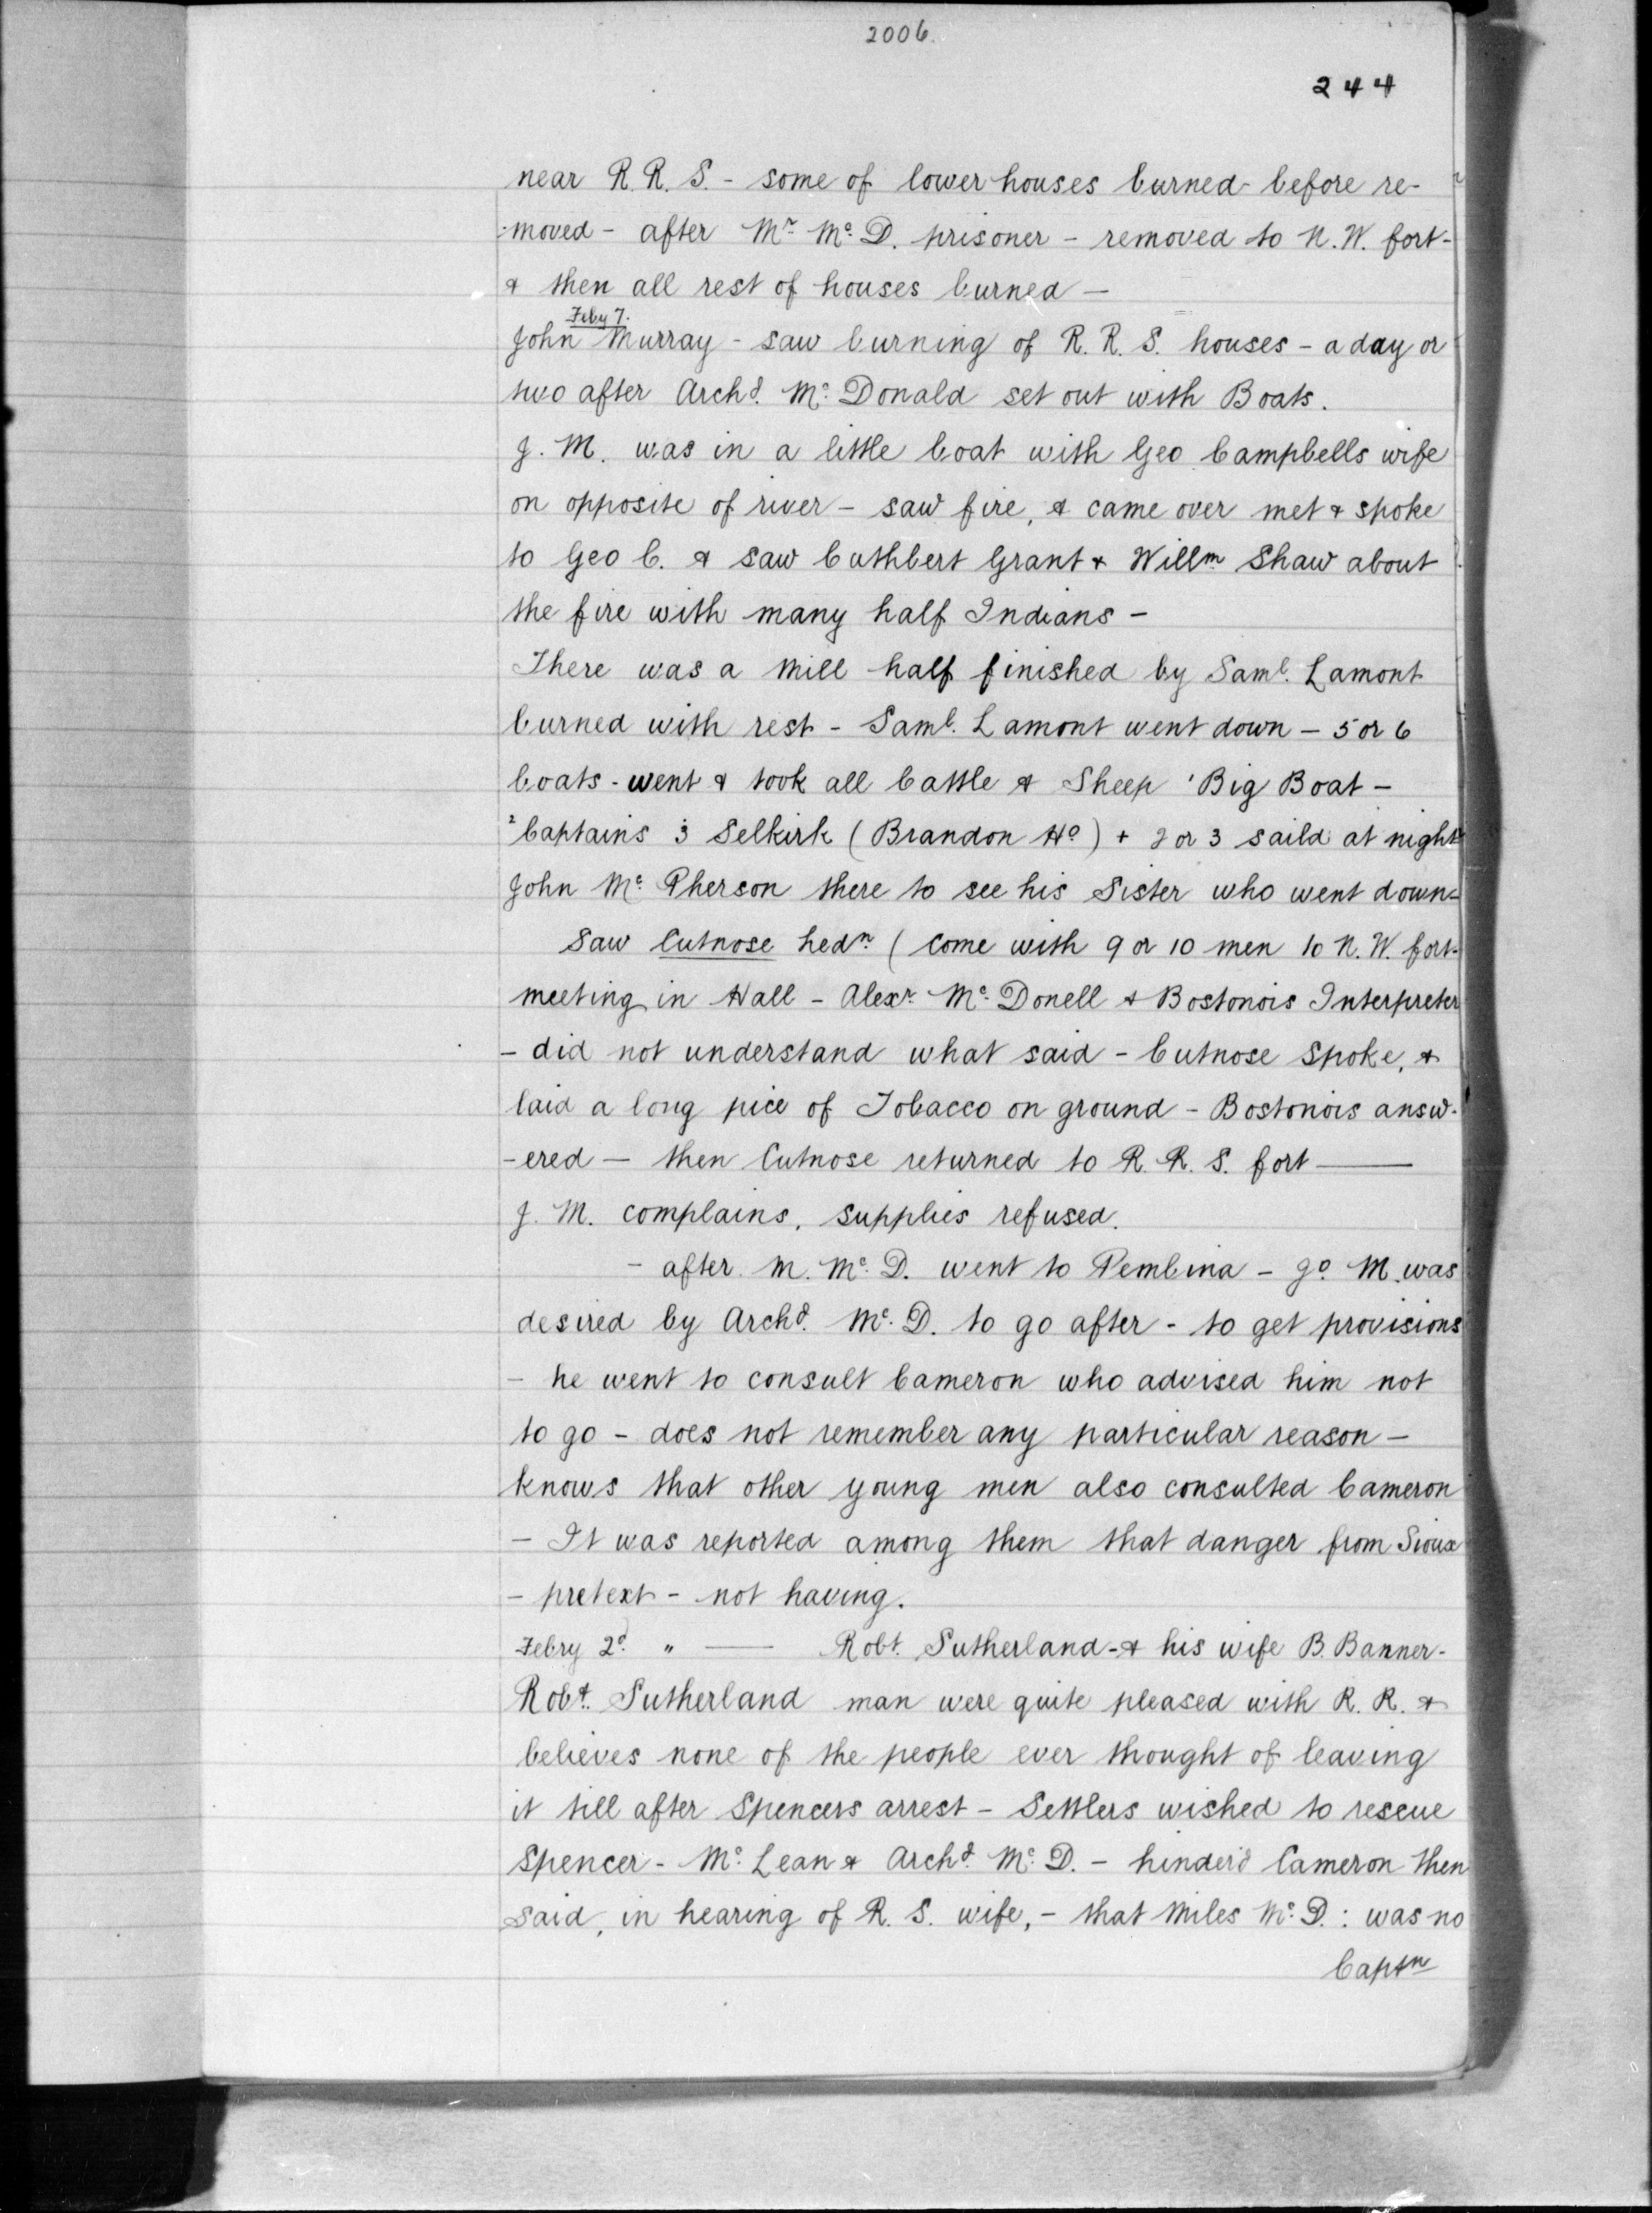 2006.
244
near R. R. S. - some of lower houses burned before re-
-moved - after Mr. Mc. D. prisoner - removed to N. W. fort -
& then all rest of houses burned -
Feby 7.
John Murray - saw burning of R. R. S. houses - a day or
two after Archd. Mc. Donald set out with Boats.
J. M. was in a little boat with Geo Campbells wife
on opposite of river - saw fire, & came over met & spoke
to Geo C. & saw Cuthbert Grant & Willm Shaw about
the fire with many half Indians -
There was a Mill half finished by Saml. Lamont
burned with rest - Saml. Lamont went down - 5 or 6
boats - went & took all Cattle & Sheep ' Big Boat -
2 Captains 3 Selkirk (Brandon Ho) + 2 or 3 saild at night
John Mc. Pherson there to see his Sister who went down -
Saw Cutnose hedn. ( come with 9 or 10 men to N. W. fort -
meeting in Hall - Alexr. Mc. Donell & Bostonois Interpreter
- did not understand what said - Cutnose spoke, &
laid a long pice of Tobacco on ground - Bostonois answ-
-ered - then Cutnose returned to R. R. S. fort —
J. M. complains, supplies refused.
- after M. Mc. D. went to Pembina - Jo. M. was
desired by Archd. Mc. D. to go after - to get provisions
- he went to consult Cameron who advised him not
to go - does not remember any particular reason -
knows that other young men also consulted Cameron
- It was reported among them that danger from Sioux
- pretext - not having.
Febry 2d. " — Robt. Sutherland - & his wife B. Banner-
Robt. Sutherland man were quite pleased with R. R. &
believes none of the people ever thought of leaving
it till after Spencers arrest - Settlers wished to rescue
Spencer - Mc. Lean & Archd. Mc. D. - hinder'd Cameron then
said, in hearing of R. S. wife, - that Miles Mc. D. : was no
Captn